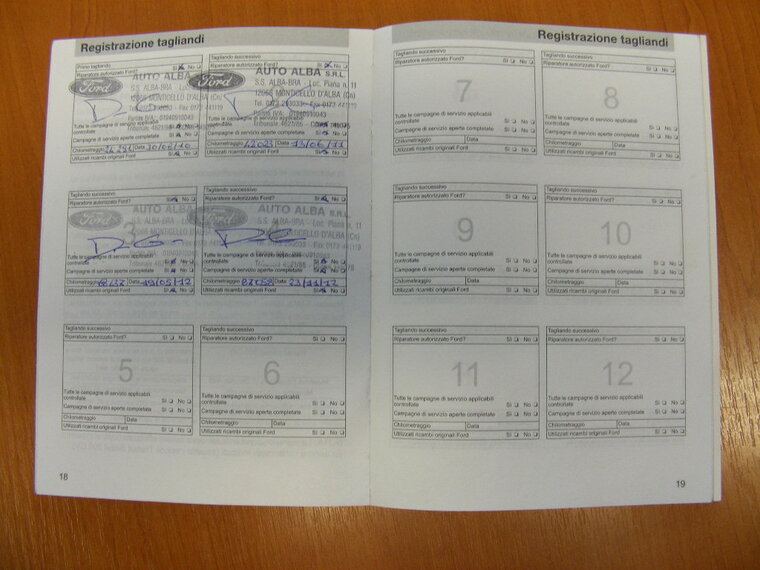 Registrazione tagliandi
Primo tagliando
Riparatore autorizzato Ford? Sì No
Ford
AUTO ALBA
S.S. ALBA-BRA
12066 MONTICELLO
Tutte le campagne di servizio applicabili
controllate Sì No
Campagne di servizio aperte completate Sì No
Chilometraggio Data 30/08/10
Utilizzati ricambi originali Ford Sì No
Tagliando successivo
Riparatore autorizzato Ford? Sì No
Ford
AUTO ALBA S.R.L.
S.S. ALBA-BRA - Loc. Piana n. 11
12066 MONTICELLO D'ALBA (Cn)
Campagne di servizio aperte completate Sì No
Chilometraggio 42023 Data 13/06/11
Utilizzati ricambi originali Ford Sì No
Tagliando successivo
Ford
AUTO ALBA
S.S. ALBA-BRA
Tutte le campagne di servizio applicabili
controllate Sì No
Campagne di servizio aperte completate Sì No
Chilometraggio Data 19/05/12
Utilizzati ricambi originali Ford Sì No
Tagliando successivo
Ford
AUTO ALBA S.R.L.
S.S. ALBA-BRA - Loc. Piana n. 11
12066 MONTICELLO D'ALBA (Cn)
Campagne di servizio aperte completate Sì No
Chilometraggio 87058 Data 23/11/12
Utilizzati ricambi originali Ford Sì No
Tagliando successivo
Riparatore autorizzato Ford? Sì No
5
Tutte le campagne di servizio applicabili
controllate Sì No
Campagne di servizio aperte completate Sì No
Chilometraggio Data
Utilizzati ricambi originali Ford Sì No
Tagliando successivo
Riparatore autorizzato Ford? Sì No
6
Tutte le campagne di servizio applicabili
controllate Sì No
Campagne di servizio aperte completate Sì No
Chilometraggio Data
Utilizzati ricambi originali Ford Sì No
18
Registrazione tagliandi
Tagliando successivo
Riparatore autorizzato Ford? Sì No
7
Tutte le campagne di servizio applicabili
controllate Sì No
Campagne di servizio aperte completate Sì No
Chilometraggio Data
Utilizzati ricambi originali Ford Sì No
Tagliando successivo
Riparatore autorizzato Ford? Sì No
8
Tutte le campagne di servizio applicabili
controllate Sì No
Campagne di servizio aperte completate Sì No
Chilometraggio Data
Utilizzati ricambi originali Ford Sì No
Tagliando successivo
Riparatore autorizzato Ford? Sì No
9
Tutte le campagne di servizio applicabili
controllate Sì No
Campagne di servizio aperte completate Sì No
Chilometraggio Data
Utilizzati ricambi originali Ford Sì No
Tagliando successivo
Riparatore autorizzato Ford? Sì No
10
Tutte le campagne di servizio applicabili
controllate Sì No
Campagne di servizio aperte completate Sì No
Chilometraggio Data
Utilizzati ricambi originali Ford Sì No
Tagliando successivo
Riparatore autorizzato Ford? Sì No
11
Tutte le campagne di servizio applicabili
controllate Sì No
Campagne di servizio aperte completate Sì No
Chilometraggio Data
Utilizzati ricambi originali Ford Sì No
Tagliando successivo
Riparatore autorizzato Ford? Sì No
12
Tutte le campagne di servizio applicabili
controllate Sì No
Campagne di servizio aperte completate Sì No
Chilometraggio Data
Utilizzati ricambi originali Ford Sì No
19